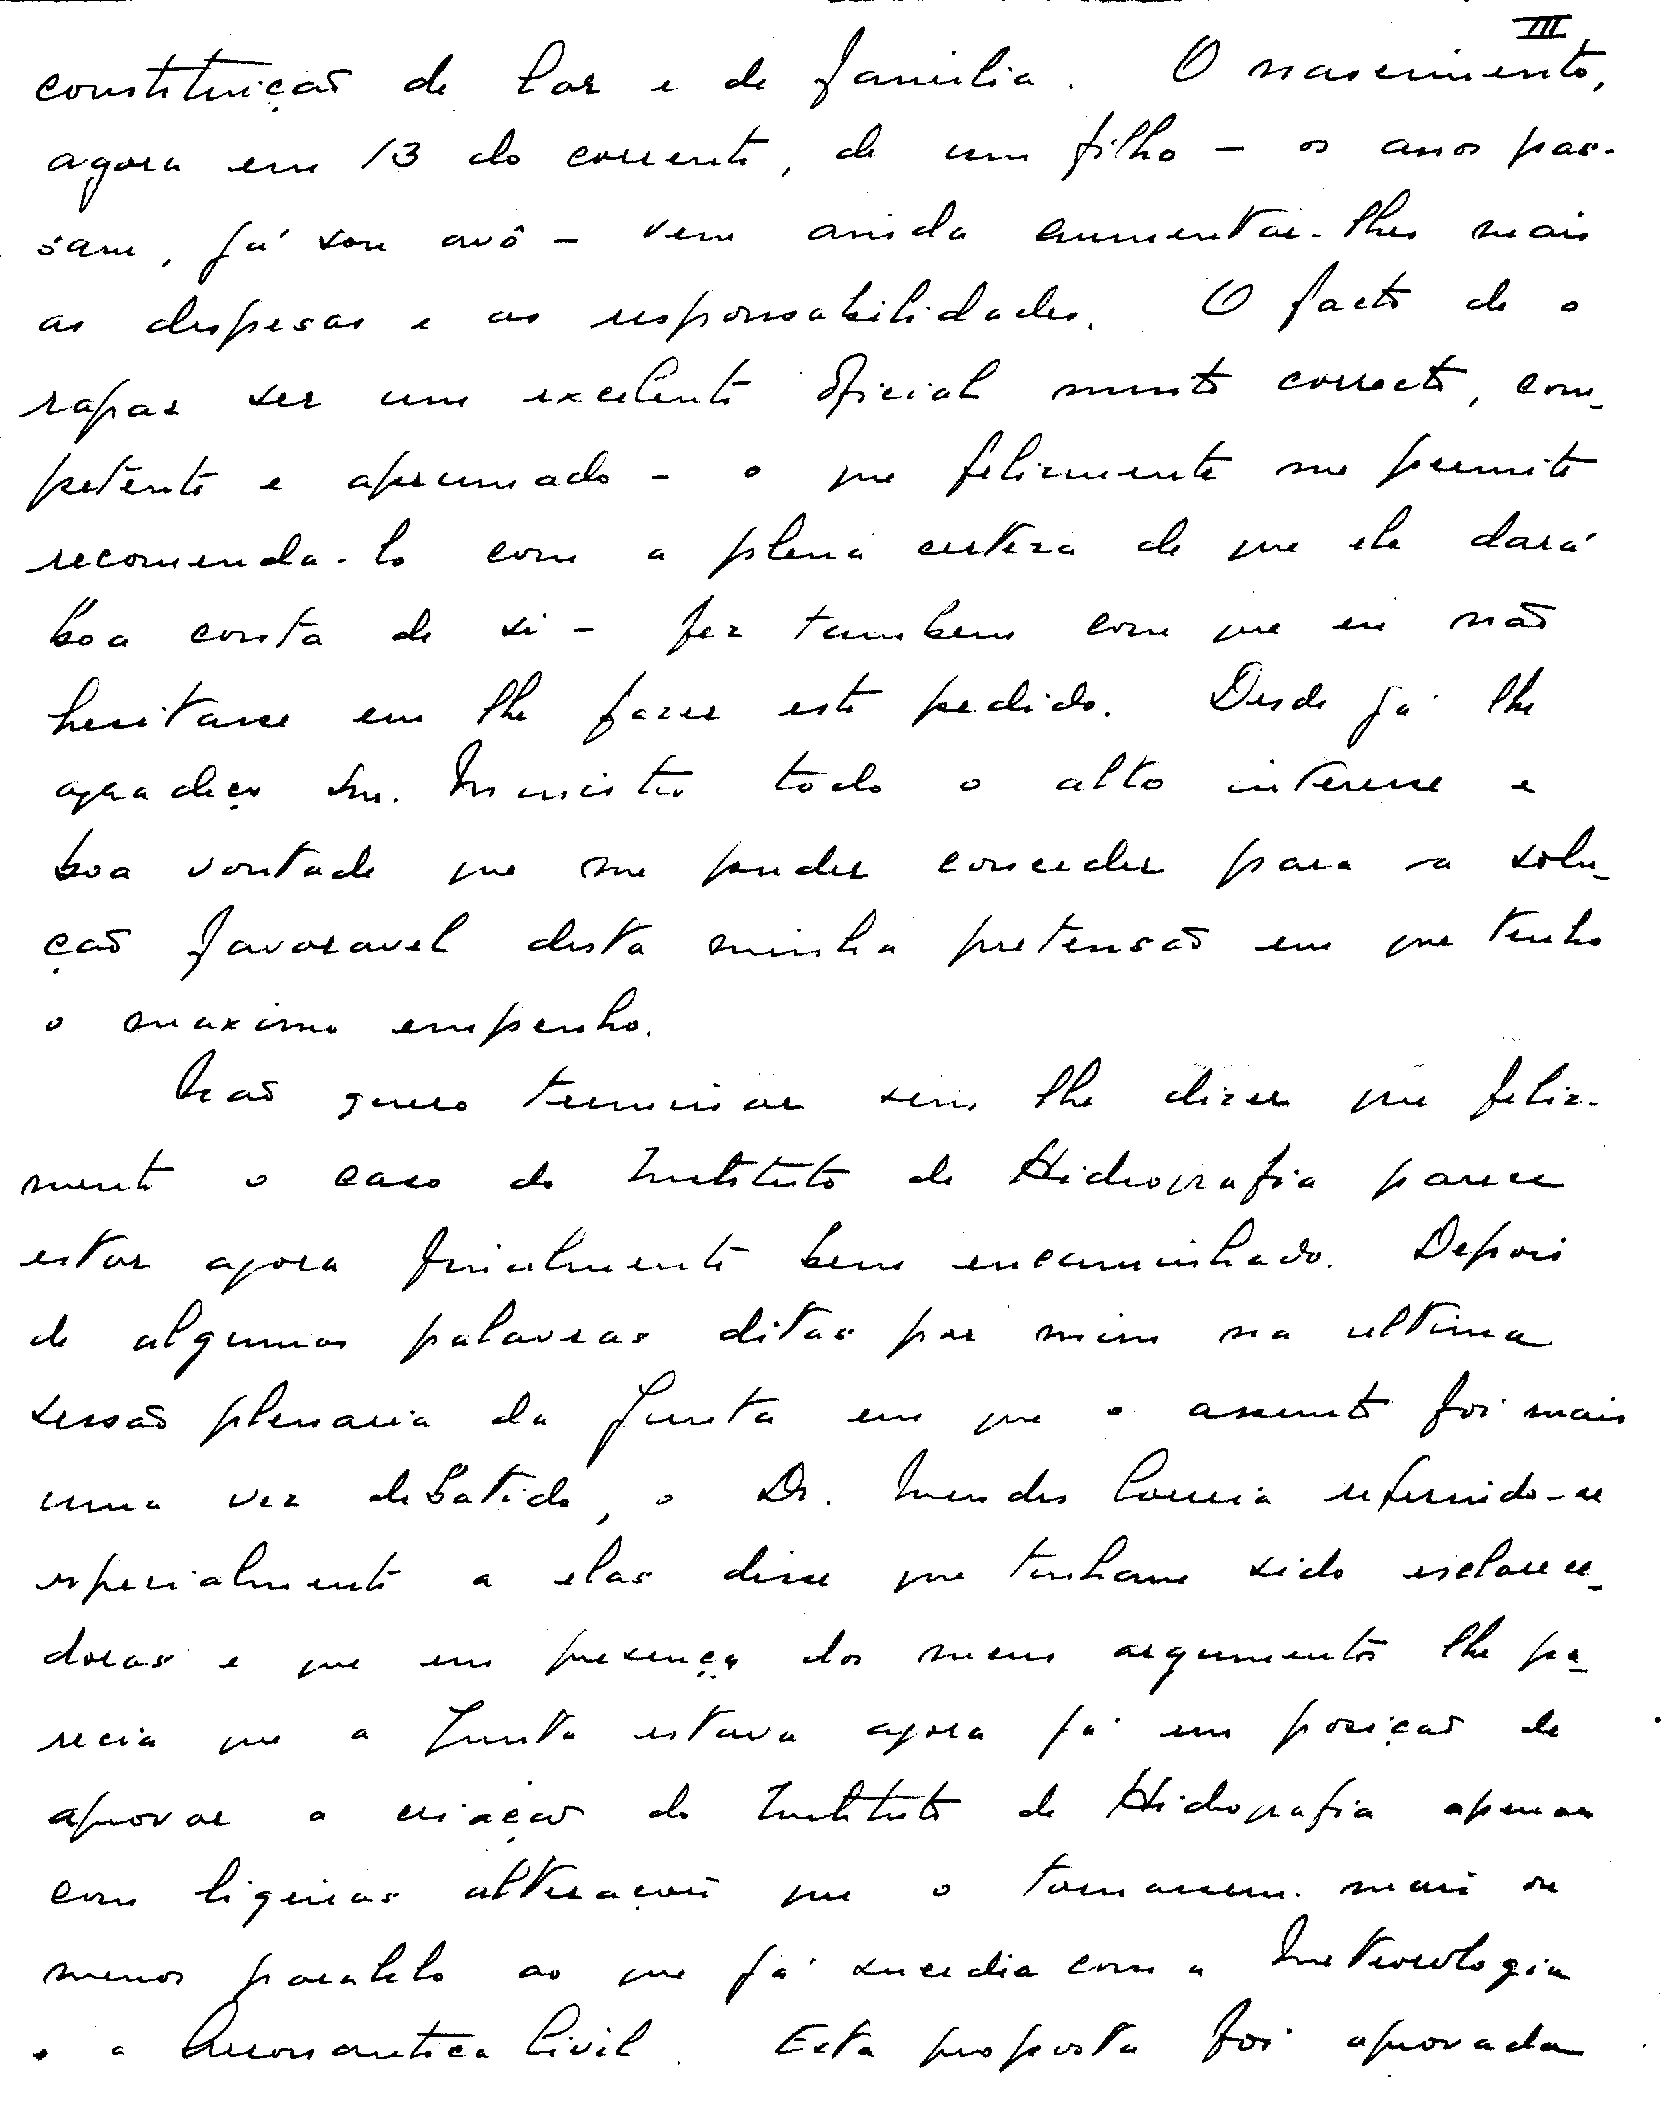 III
constituição de lar e de familia. O nascimento,
agora em 13 do corrente, de um filho – os anos pas-
sam, já sou avô – vem ainda aumentar-lhes mais
as despesas e as responsabilidades. O facto de o
rapaz ser um excelente oficial muito correcto, com-
petente e aprumado – o que felizmente me permite
recomenda-lo com a plena certeza de que ele dará
boa conta de si – fez tambem com que eu não
hesitasse em lhe fazer este pedido. Desde já lhe
agradeço Snr. Ministro todo o alto interesse e
boa vontade que me puder conceder para a solu-
ção favoravel desta minha pretensão em que tenho
o maximo empenho.
Não quero terminar sem lhe dizer que feliz-
mente o caso do Instituto de Hidrografia parece
estar agora finalmente bem encaminhado. Depois
de algumas palavras ditas por mim na ultima
sessão plenaria da Junta em que o assunto foi mais
uma vez debatido, o Dr. Mendes Correia referindo-se
especialmente a elas disse que tinham sido esclarece-
doras e que em presença dos meus argumentos lhe pa-
recia que a Junta estava agora já em posição de
aprovar a criação do Instituto de Hidrografia apenas
com ligeiras alterações que o tornassem mais ou
menos paralelo ao que já sucedia com a Meteorologia
e a Aeronautica Civil. Esta proposta foi aprovada